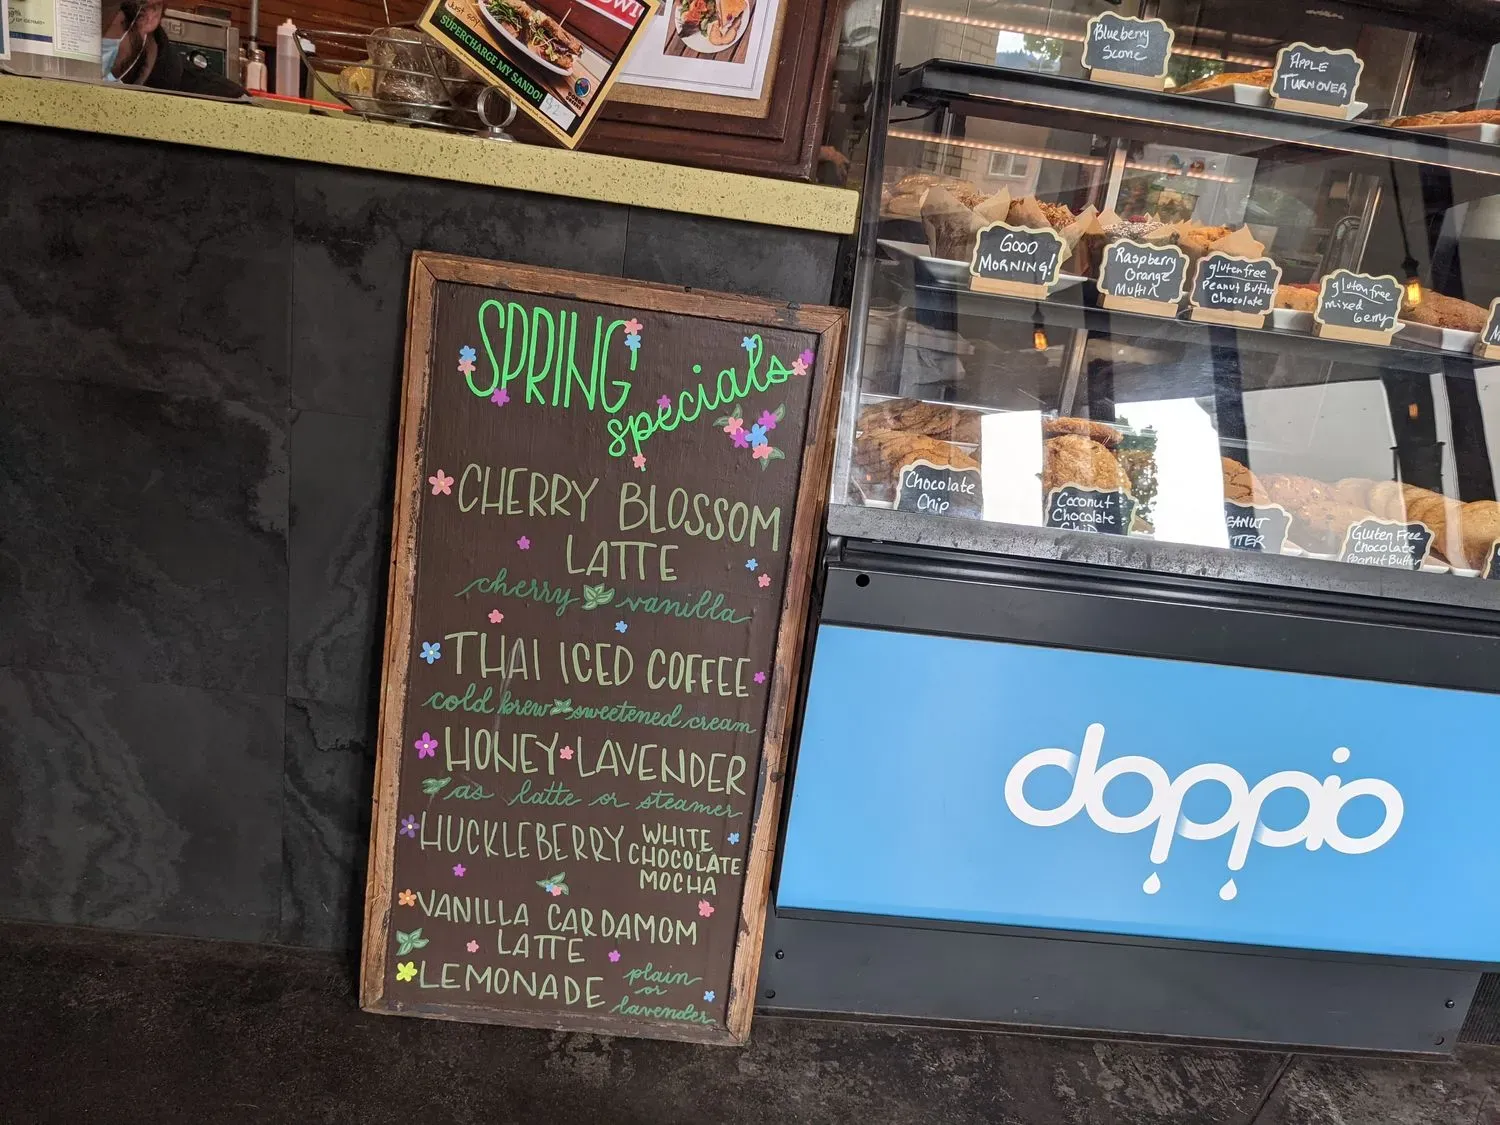 Just say
SUPERCHARGE MY SANDO!
SPRING
specials
CHERRY BLOSSOM
LATTE
cherry vanilla
THAI ICED COFFEE
cold brew sweetened cream
HONEY LAVENDER
as latte or steamer
HUCKLEBERRY WHITE
CHOCOLATE
MOCHA
VANILLA CARDAMOM
LATTE
LEMONADE plain
or
lavender
Blueberry
Scone
APPLE
TURNOVER
GOOD
MORNING!
Raspberry
Orange
Muffin
gluten free
Peanut Butter
Chocolate
gluten free
mixed
berry
Chocolate
Chip
Coconut
Chocolate
Chip
Gluten Free
Chocolate
Peanut Butter
doppio